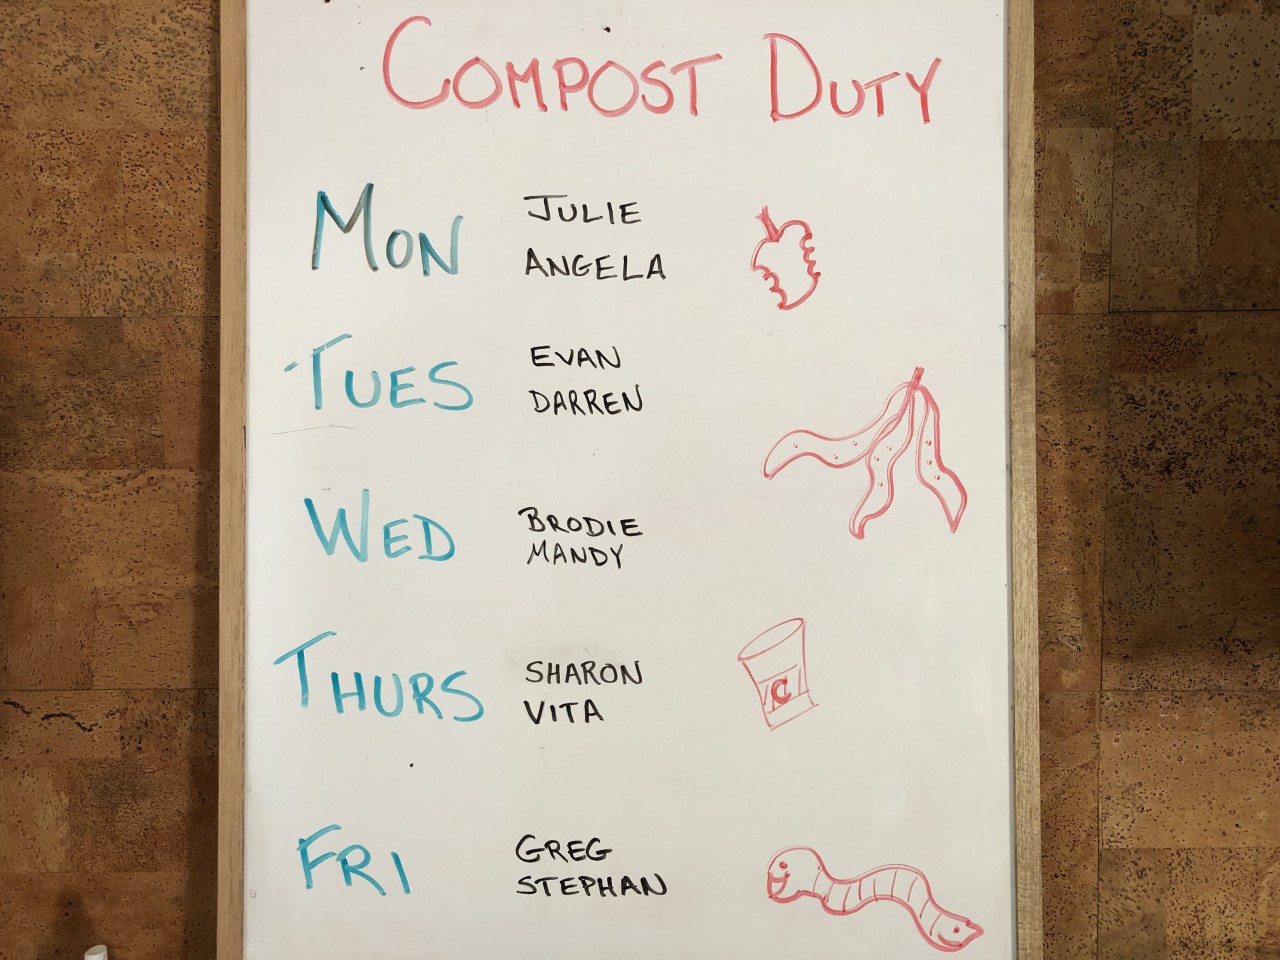 COMPOST DUTY
MON
JULIE
ANGELA
TUES
EVAN
DARREN
WED
BRODIE
MANDY
THURS
SHARON
VITA
C
FRI
GREG
STEPHAN